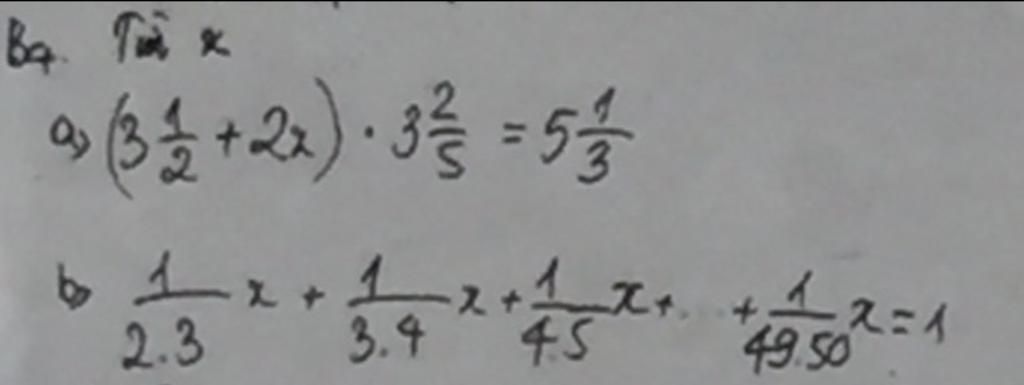 B4. Tìm x
a) (3 1/2 + 2x) · 3 2/5 = 5 1/3
b) 1/2.3 x + 1/3.4 x + 1/4.5 x + ... + 1/49.50 x = 1